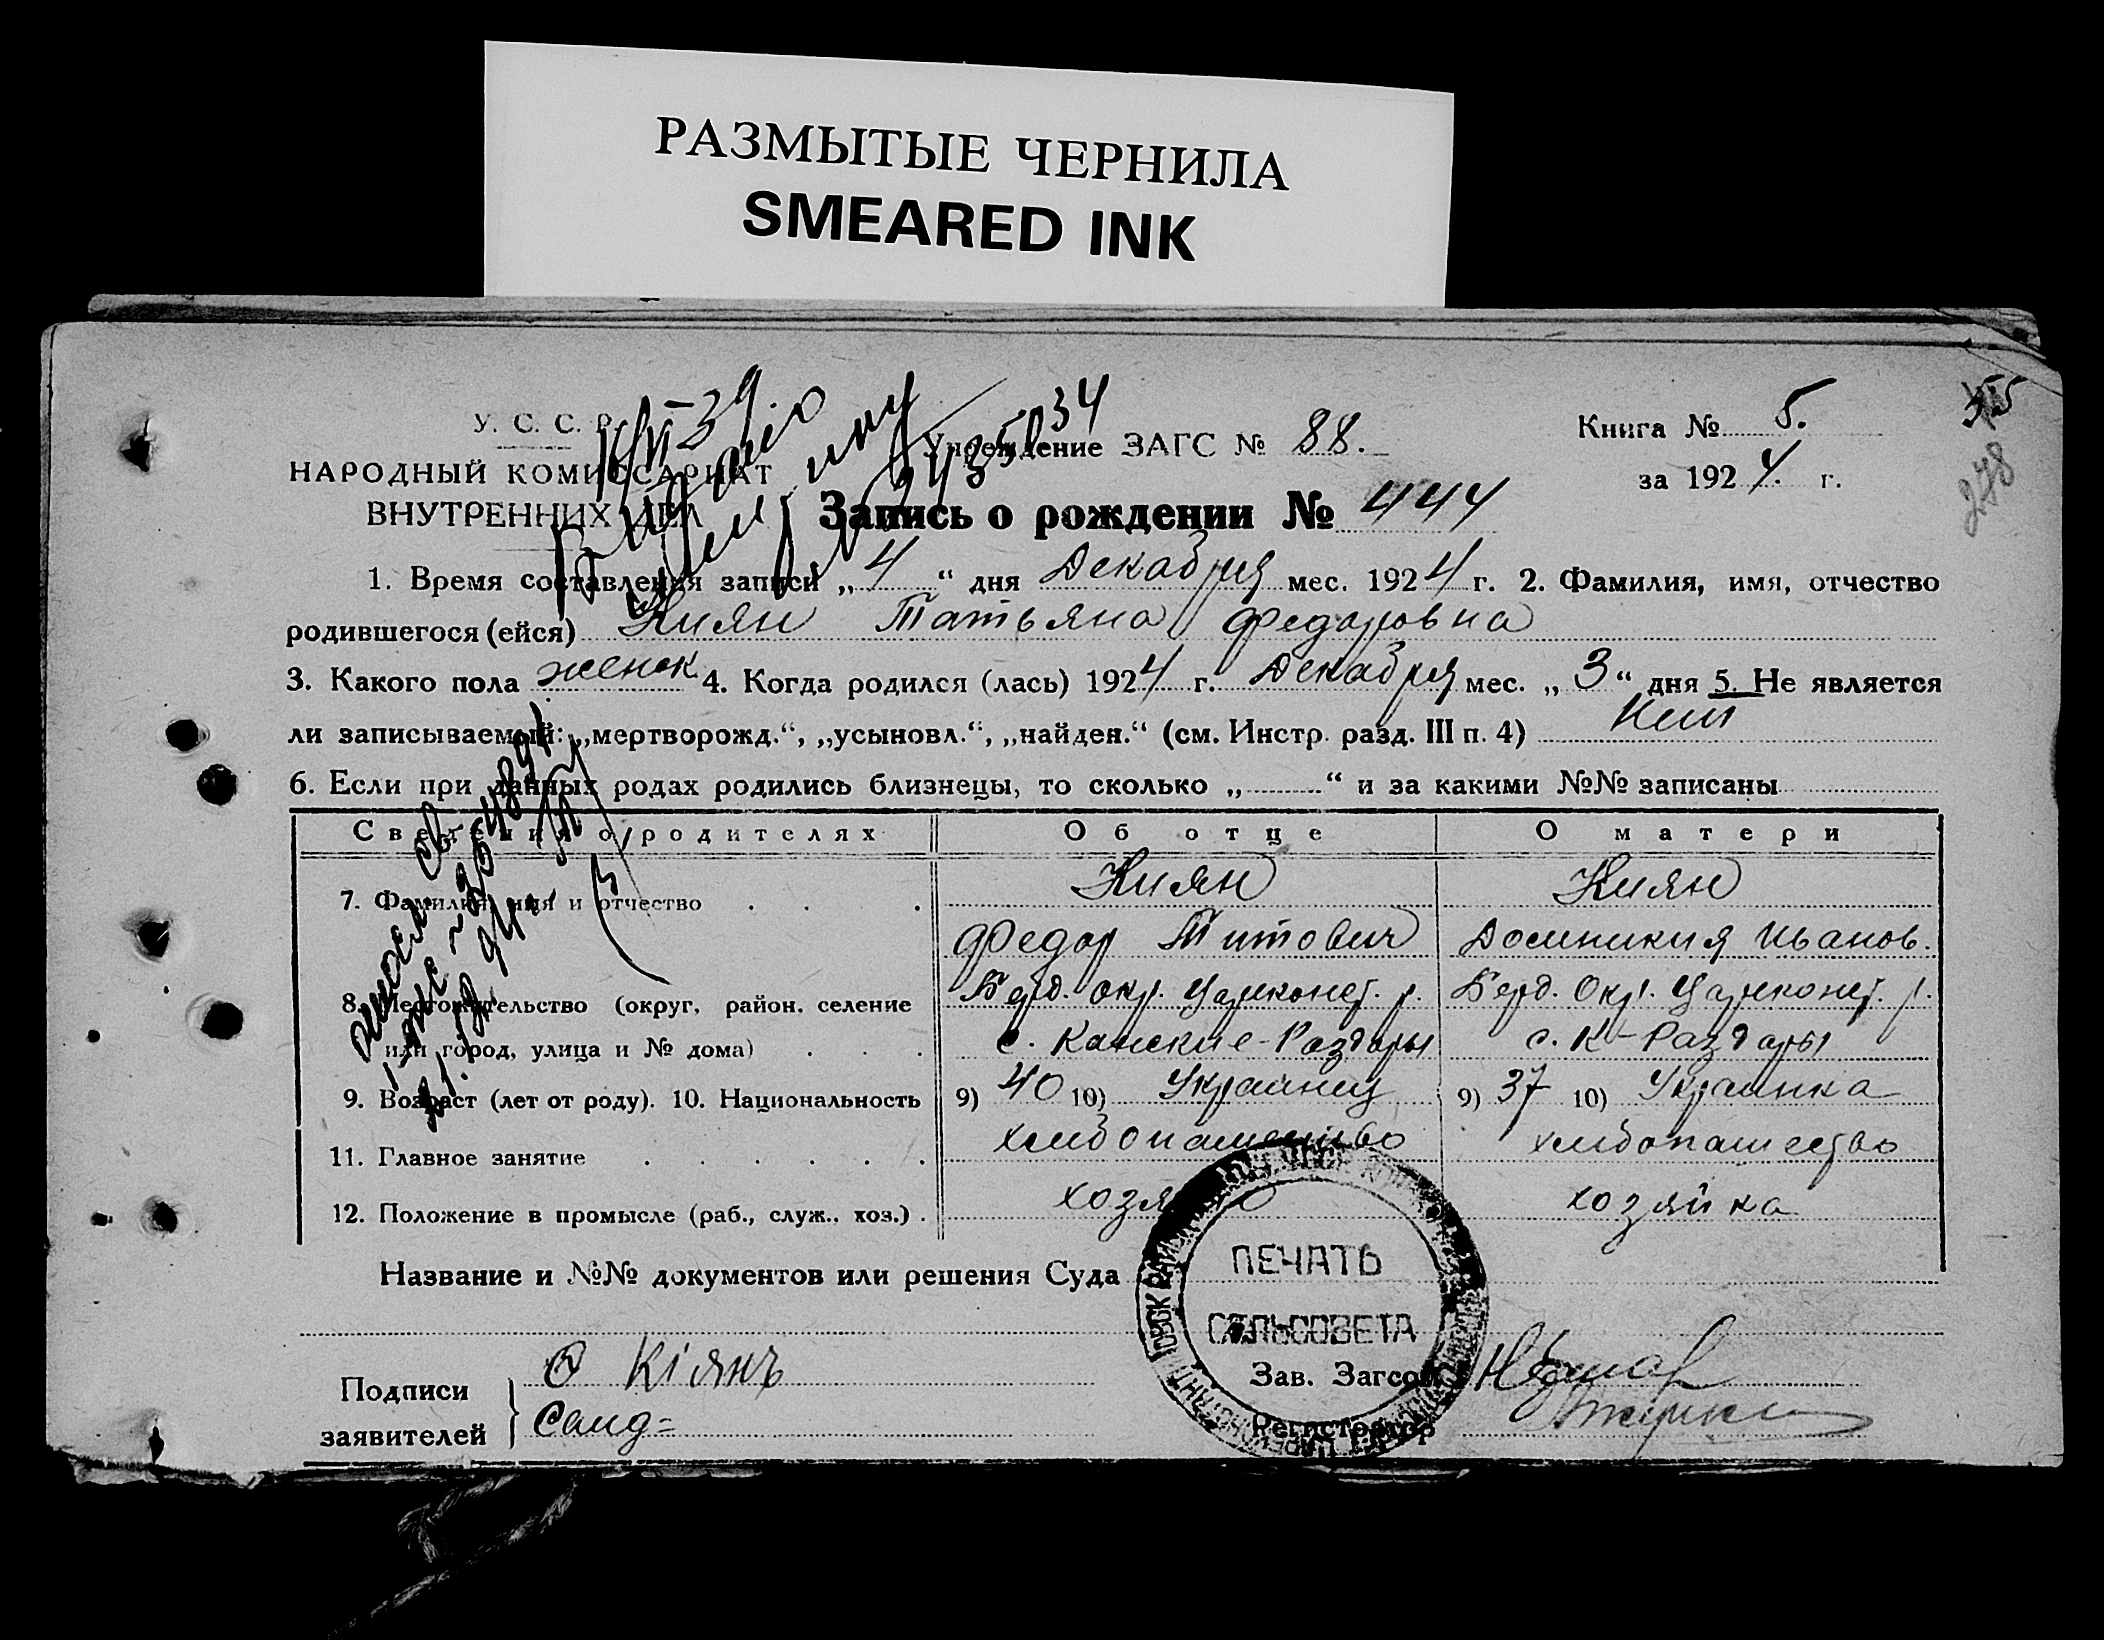 РАЗМЫТЫЕ ЧЕРНИЛА
SMEARED INK
У. С. С. Р.
НАРОДНЫЙ КОМИССАРИАТ
ВНУТРЕННИХ ДЕЛ
Учреждение ЗАГС № 88.
Книга № 5.
за 1924 г.
55
278
Запись о рождении № 444
1. Время составления записи „4“ дня Декабря мес. 1924 г. 2. Фамилия, имя, отчество
родившегося (ейся) Киян Татьяна Федоровна
3. Какого пола женск 4. Когда родился (лась) 1924 г. Декабря мес. „3“ дня 5. Не является
ли записываемый: „мертворожд.“, „усыновл.“, „найден.“ (см. Инстр. разд. III п. 4) Нет
6. Если при данных родах родились близнецы, то сколько „ “ и за какими №№ записаны
Сведения о родителях Об отце О матери
7. Фамилия, имя и отчество Киян Киян
Федор Титович Домникия Иванов.
8. Местожительство (округ, район, селение Берд. окр. Цареконст. р. Берд. Окр. Цареконст. р.
или город, улица и № дома) с. Камские-Раздоры с. К-Раздоры
9. Возраст (лет от роду). 10. Национальность 9) 40 10) Украинец 9) 37 10) Украинка
11. Главное занятие хлебопашество хлебопашество
12. Положение в промысле (раб., служ., хоз.) хозяин хозяйка
Название и №№ документов или решения Суда
ПЕЧАТЬ
СЕЛЬСОВЕТА
Подписи
заявителей
Кіянъ
Зав. Загсом
Регистратор